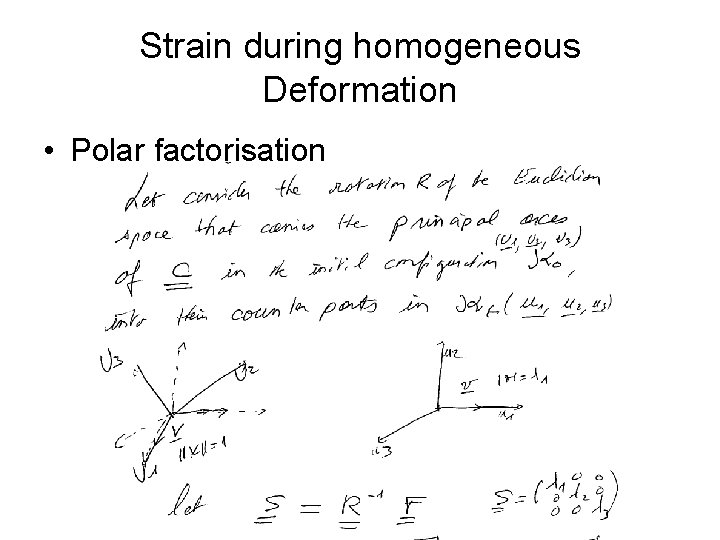 Strain during homogeneous
Deformation
• Polar factorisation
Let consider the rotation R of the Euclidian
space that carries the principal axes
(U1, U2, U3)
of C in the initial configuration K0,
into their counter parts in Kt (u1, u2, u3)
U3
U2
V
||V||=1
U1
u2
v
|v|=λ1
u1
u3
let S = R⁻¹ F
S = (λ1 0 0
0 λ2 0
0 0 λ3)